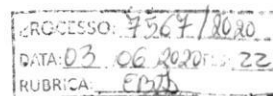 PROCESSO: 7567/2020
DATA: 03 06 2020 FLS: 22
RUBRICA: